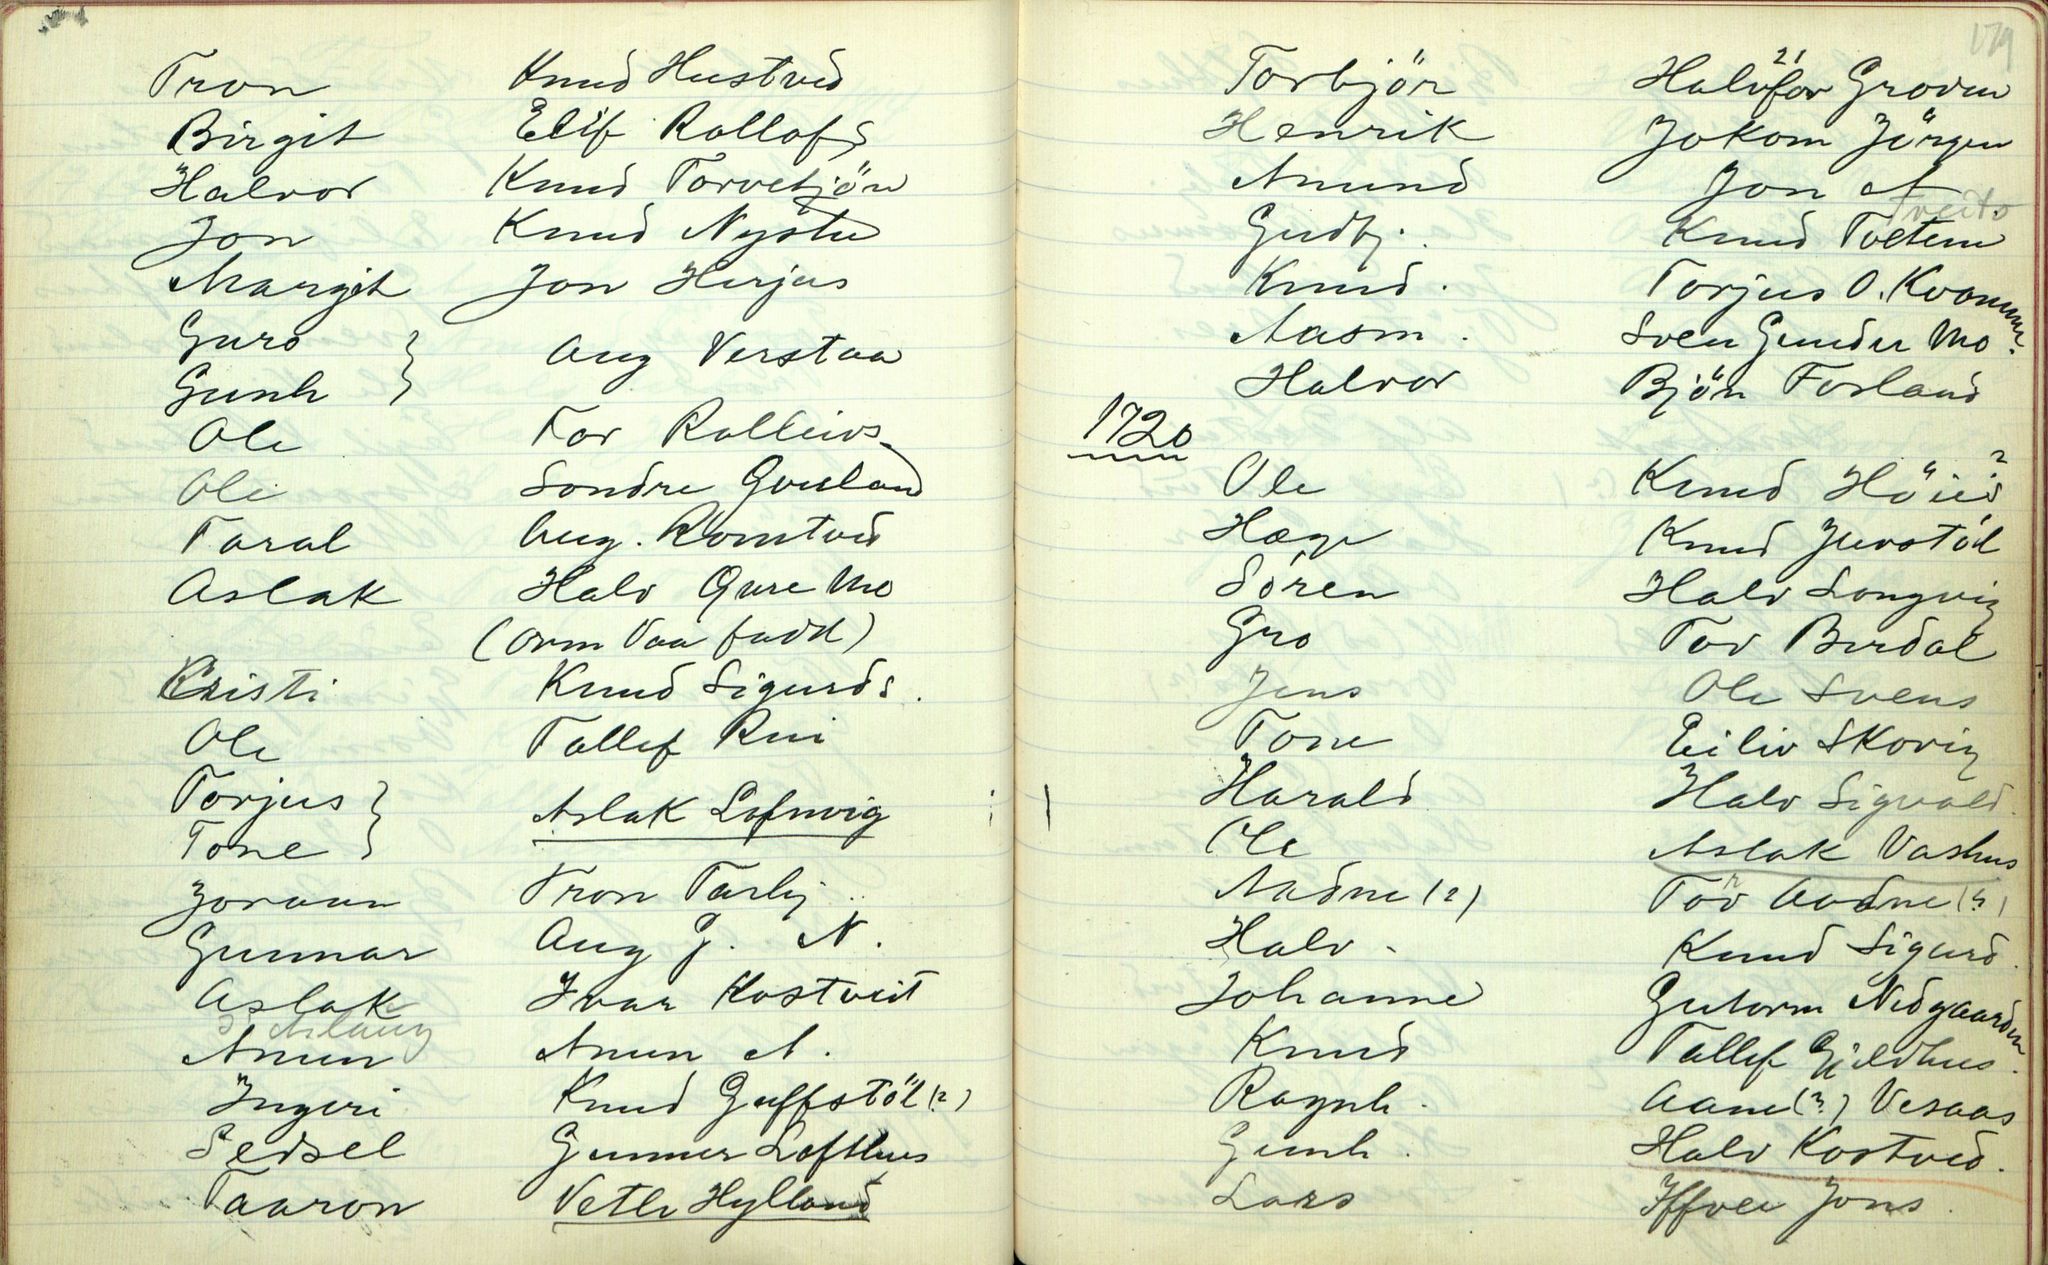 Tron Knud Hustved
Birgit Elif Rollofs
Halvor Knud Torvebjön
Jon Knud Nystu
Margit Jon Herjus
Guro
Aug Verstaa
Gunh
Ole Tor Rolleivs
Ole Sondre Gvuland
Taral Aug. Romtved
Aslak Halv Qvre Mo
(Orm Vaa fadd)
Kristi Knud Sigurds.
Ole Tallef Rui
Torjus
Aslak Lofnvig
Tone
Joraan Tron Tarbj.
Gunnar Aug G. N.
Aslak Ivar Kostveit
Aslaug
Anun Anun A.
Ingeri Knud Guffstöl (?)
Sedsel Gunner Lofthus
Taaron Vetle Hylland
179
Torbjör Halvor Groven
Henrik Jokom Jörgen
Anund Jon A
Tveito
Gudbj. Knud Tveten
Knud. Torjus O. Kvammen
Aasm. Sven Gunder Mo.
Halvor Bjön Forland
1720
Ole Knud Höied ?
Hæge Knud Juvstöl
Sören Halv Longvig
Gro Tov Berdal
Jens Ole Svens
Tone Eiliv Skovig
Harald Halv Sigvald.
Ole Aslak Vashus
Aadne (?) Tov Aadne (?)
Halv. Knud Sigurd.
Johanne Gutorm Nedgaarden
Knud Tallef Gjeldhus.
Ragnh. Aane (?) Vesaas
Gunh. Halv Kostved.
Lars Iffver Jons.